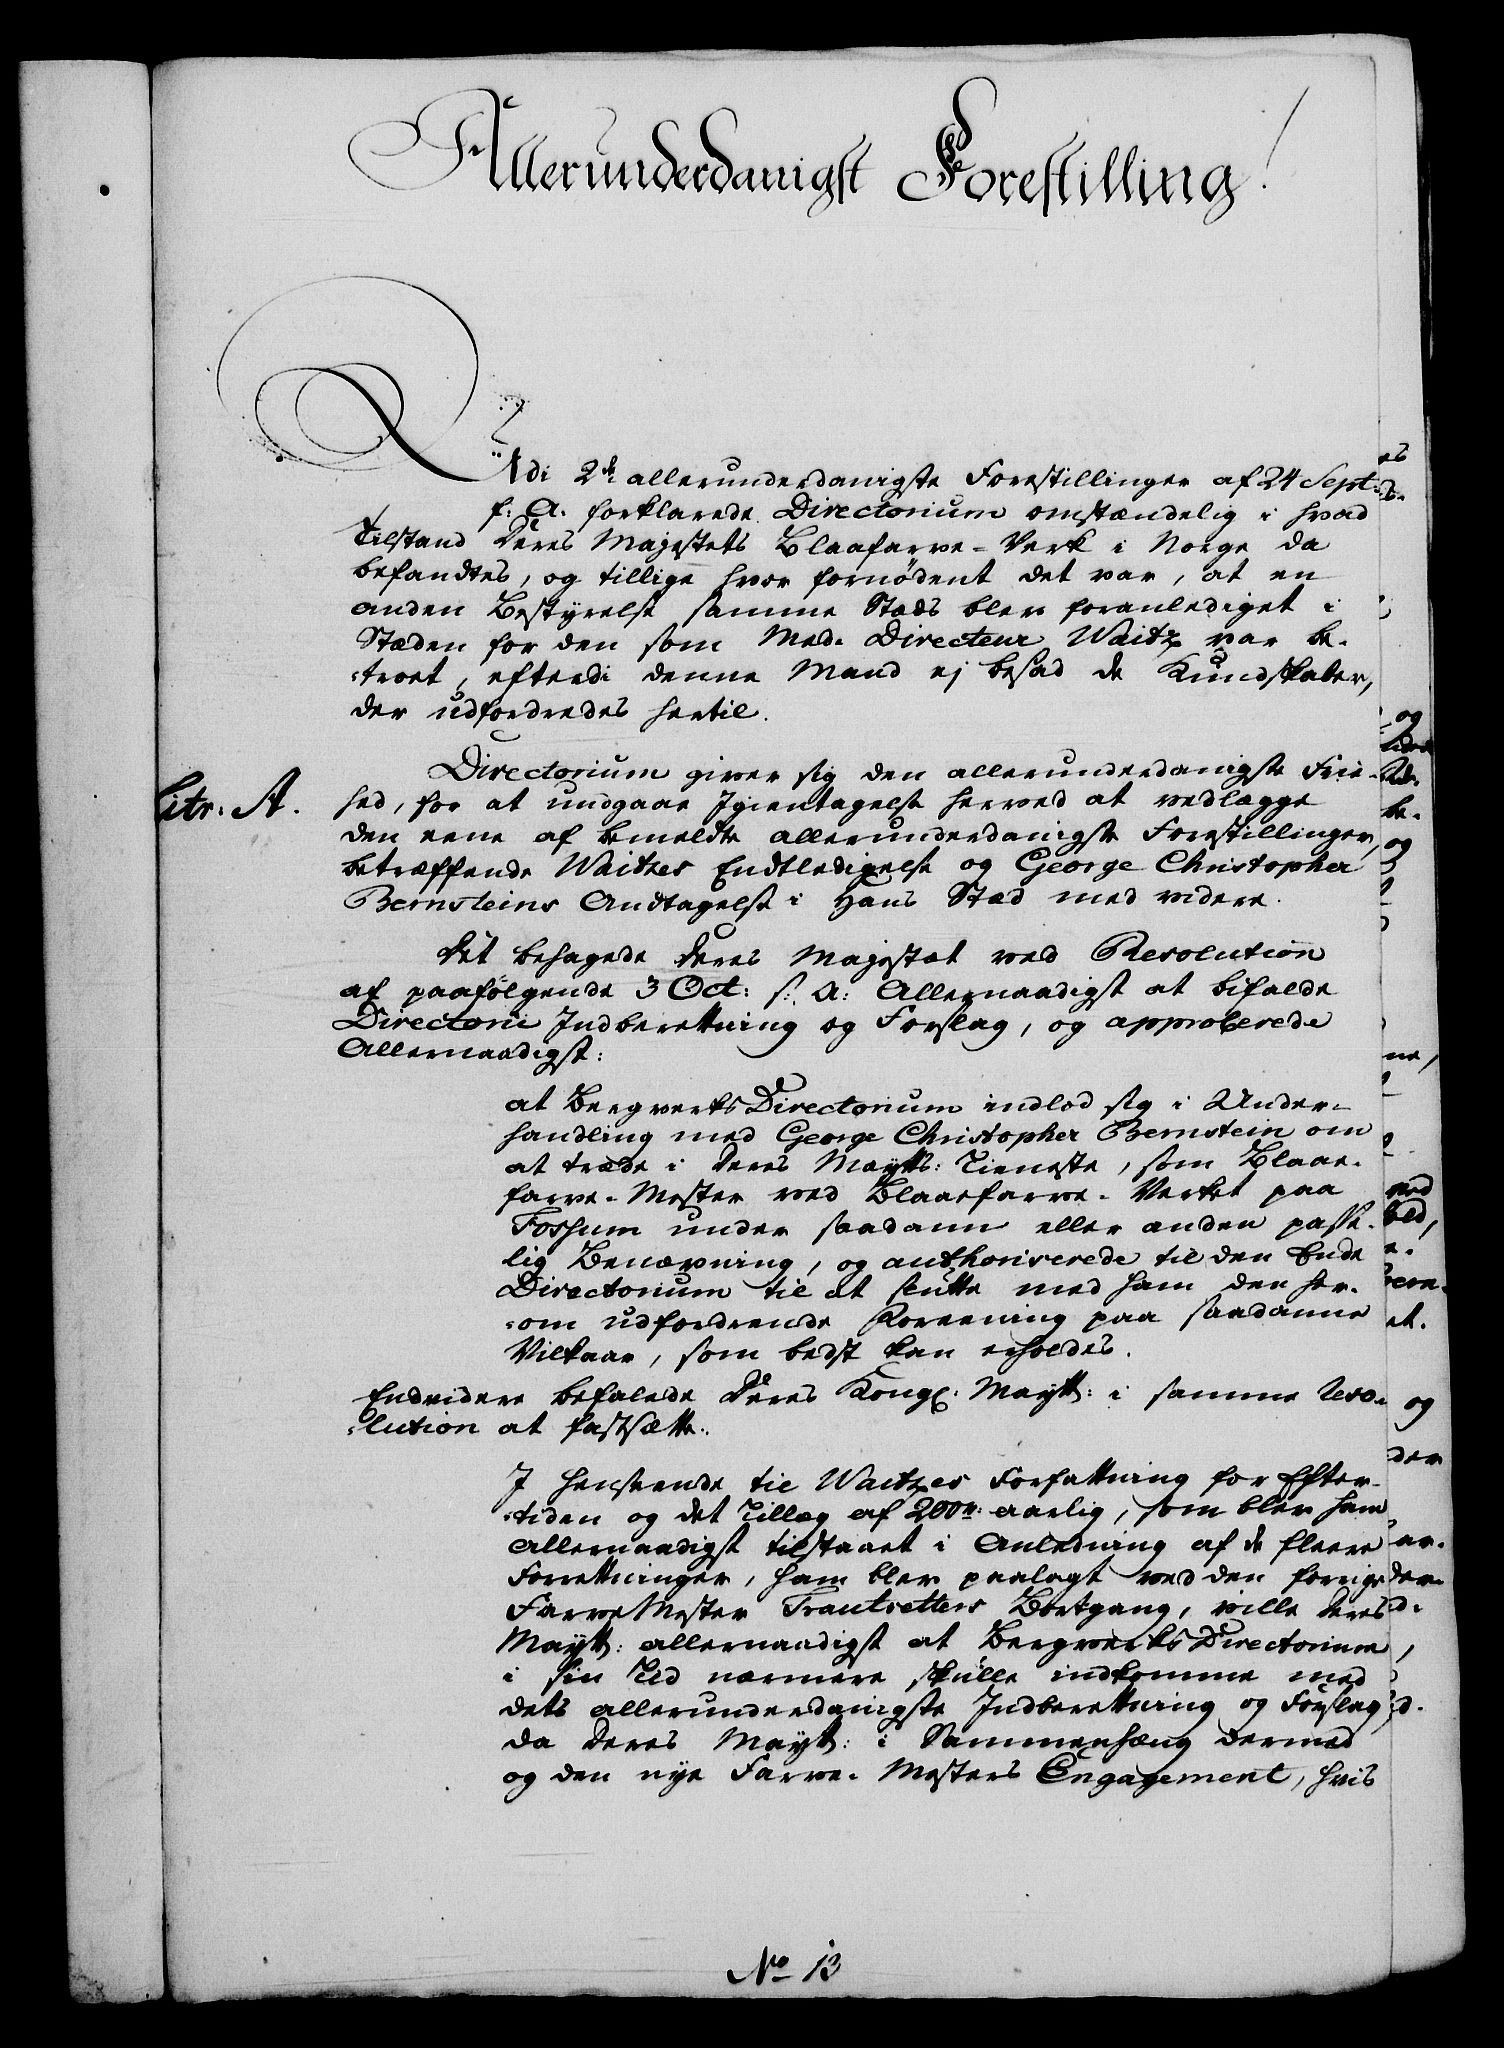 Allerunderdanigst Forestilling!
Udi 2de allerunderdanigste Forestillinger af 24 Sept:
f: A. forklarede Directorium omstændelig i hvad
Tilstand Deres Majestets Blaafarve-Verk i Norge da
befandtes, og tillige hvor fornödent det var, at en
anden Bestyrelse samme Stæds blev foranlediget i
Stæden for den som Med. Directeur Waitz var be-
troet, efterdi denne Mand ej besad de Kundskaber,
der udfordredes hertil.
Directorium giver sig den allerunderdanigste Frie-
Litr: A. hed, for at undgaae Igientagelse herved at vedlægge
den eene af bemeldte allerunderdanigste Forestillinger,
betræffende Waitzes Endtledigelse og George Christopher
Bernsteins Andtagelse i Hans Stæd med videre.
Det behagede Deres Majestæt ved Resolution
af paafölgende 3 Oct: s: A: Allernaadigst at bifalde
Directorii Indberettning og Forslag, og approberede
Allernaadigst:
at BergverksDirectorium indlod sig i Under-
handling med George Christopher Bernstein om
at træde i Deres Maytts: Tieneste, som Blaae-
farve-Mester ved Blaaefarve-Verket paa
Fossum under saadann eller anden passe-
lig Benævning, og authoriserede til den Ende
Directorium til at slutte med ham den her-
om udfordrende Foreening paa saadanne
Vilkaar, som bedst kan erholdes.
Endvidere befalede Deres Kongl: Maytt: i samme Reso-
lution at fastsætte:
I henseende til Waitzes Forfattning for Efter-
tiden og det Tillæg af 200 r: aarlig, som blev ham
allernaadigst tilstaaet i Anledning af de fleere
Forrettninger, ham blev paalagt ved den forrige
FarveMester Trautvetters Bortgang, ville Deres
Maytt: allernaadigst at BergverksDirectorium
i sin Tid nærmere skulle indkomme med
dets allerunderdanigste Indberettning og Forslag,
da Deres Maytt: i Sammenhæng dermed
og den nye Farve-Mesters Engagement, hvis
No 13